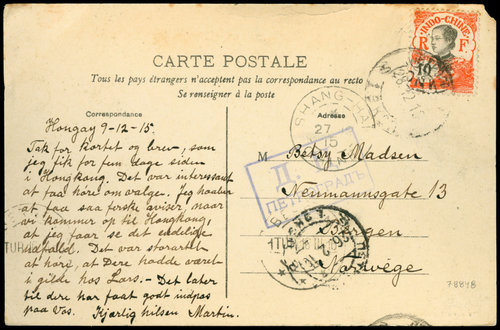 INDO-CHINE
R F
10
CARTE POSTALE
Tous les pays étrangers n'acceptent pas la correspondance au recto
Se renseigner à la poste
Correspondance
Adresse
SHANG-HAI
27
15
Hongay 9-12-15.
Tak for kortet og brev, som
jeg fik for fem dage siden
i Hongkong. Det var interessant
at faa höre om valget. Jeg haaber
at faa saa ferske aviser, naar
vi kommer op til Hongkong,
at jeg faar se det endelige
udfald. Det var storartet
at höre, at Dere hadde været
i gilde hos Lars. – Det later
til dere har faat godt indpas
paa Vos. Kjærlig hilsen Martin.
M Betsy Madsen
Neumannsgate 13
Bergen
Norvège
Д.
ПЕТРОГРАДЪ
78848